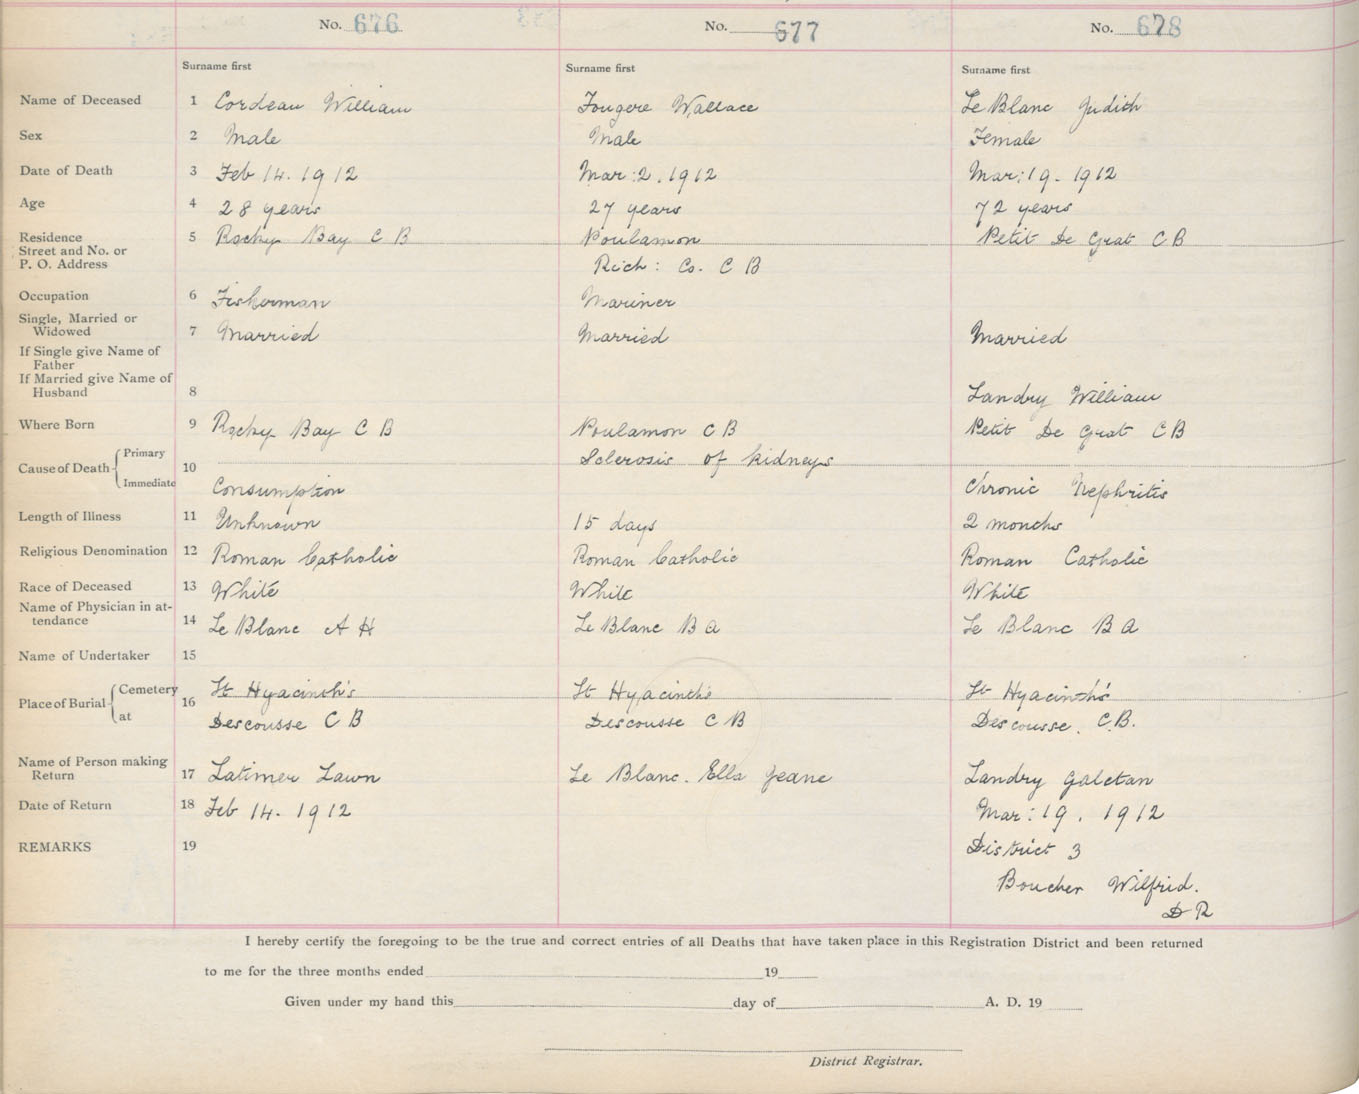 No. 676
No. 677
No. 678
Surname first
Surname first
Surname first
Name of Deceased 1 Cordeau William Fougere Wallace Le Blanc Judith
Sex 2 Male Male Female
Date of Death 3 Feb 14. 1912 Mar: 2. 1912 Mar: 19. 1912
Age 4 28 years 27 years 72 years
Residence 5 Rocky Bay C B Poulamon Petit De Grat C B
Street and No. or
P. O. Address Rich: Co. C B
Occupation 6 Fisherman Mariner
Single, Married or
Widowed 7 Married Married Married
If Single give Name of
Father
If Married give Name of
Husband 8 Landry William
Where Born 9 Rocky Bay C B Poulamon C B Petit De Grat C B
Cause of Death Primary 10 Sclerosis of kidneys
Immediate Consumption Chronic Nephritis
Length of Illness 11 Unknown 15 days 2 months
Religious Denomination 12 Roman Catholic Roman Catholic Roman Catholic
Race of Deceased 13 White White White
Name of Physician in at-
tendance 14 Le Blanc A H Le Blanc B A Le Blanc B A
Name of Undertaker 15
Place of Burial Cemetery 16 St Hyacinth's St Hyacinth's St Hyacinth's
at Descousse C B Descousse C B Descousse. C.B.
Name of Person making
Return 17 Latimer Lawn Le Blanc. Ella Jeane Landry Galetan
Date of Return 18 Feb 14. 1912 Mar: 19. 1912
REMARKS 19 District 3
Boucher Wilfrid.
D R
I hereby certify the foregoing to be the true and correct entries of all Deaths that have taken place in this Registration District and been returned
to me for the three months ended 19
Given under my hand this day of A. D. 19
District Registrar.